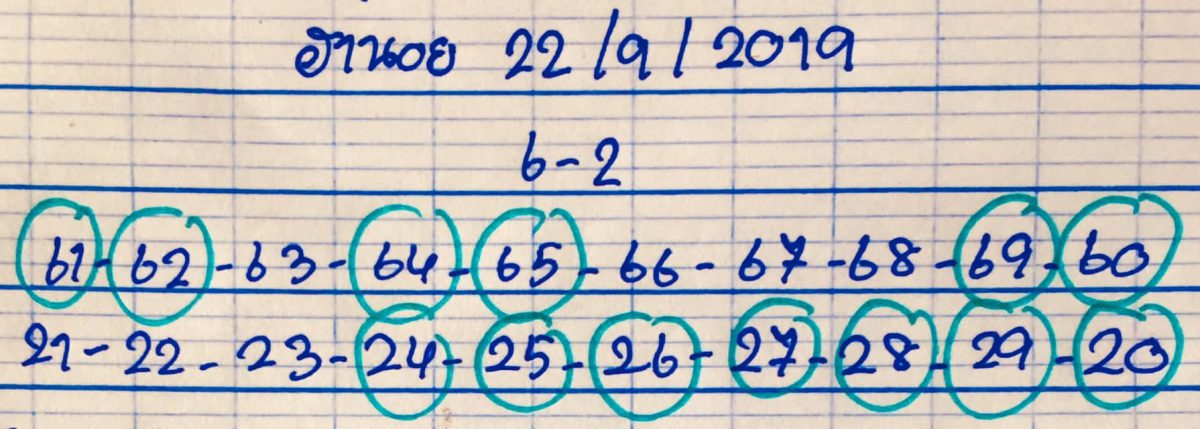 ฮานอย 22/9/2019
6-2
61-62-63-64-65-66-67-68-69-60
21-22-23-24-25-26-27-28-29-20